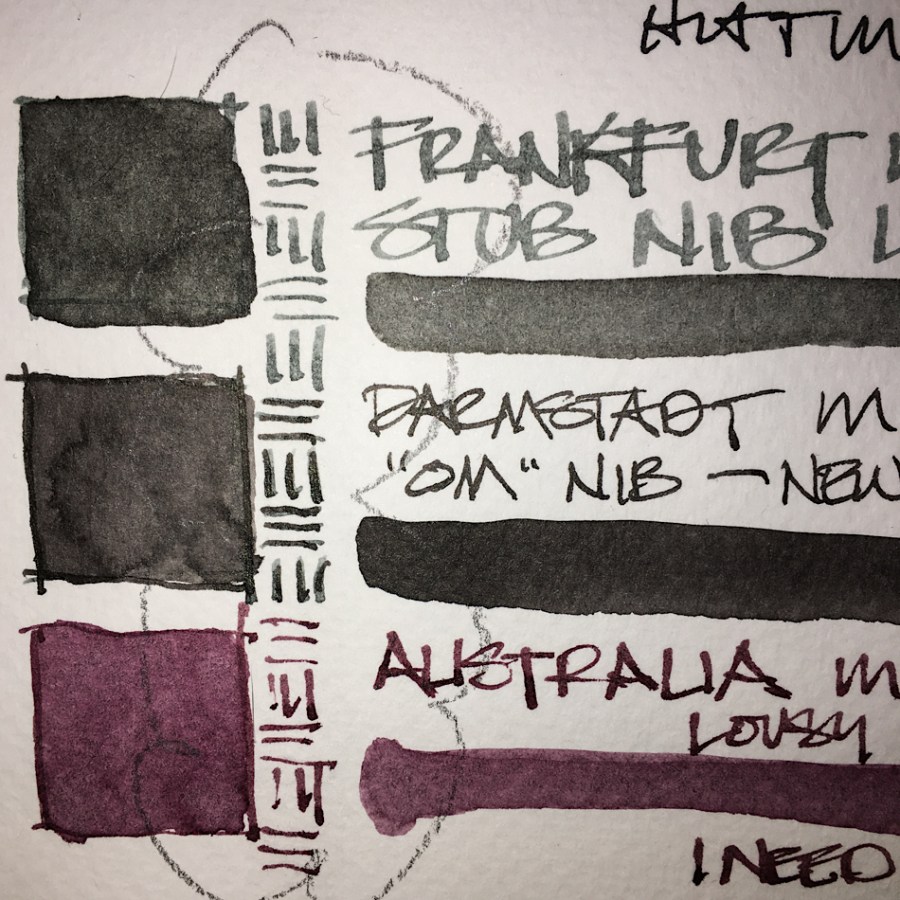 FRANKFURT
STUB NIB
DARMSTADT
"OM" NIB — NEW
AUSTRALIA
LOUSY
I NEED